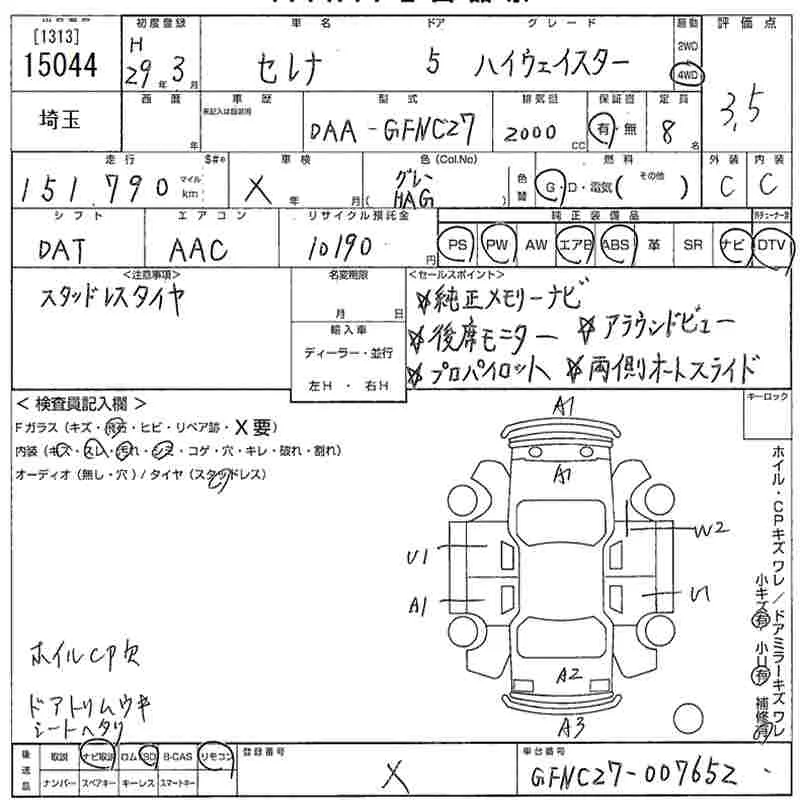 初度登録 車名 ドア グレード 駆動 評価点
[1313]
15044
H 29年 3月 セレナ 5 ハイウェイスター 2WD 4WD 3.5
埼玉 西暦 年 車歴 型式 DAA-GFNC27 排気量 2000 CC 保証書 有・無 定員 8 名
走行 151,790 マイル km S#® 車検 X 年 月 色(Col.No) グレー HAG 色替 燃料 G・D・電気( その他 ) 外装 C 内装 C
シフト DAT エアコン AAC リサイクル預託金 10190 円 純正装備品
PS PW AW エアB ABS 革 SR ナビ DTV
<注意事項> 名変期限 <セールスポイント>
スタッドレスタイヤ 月 日
☆純正メモリーナビ
☆後席モニター ☆アラウンドビュー
☆プロパイロット ☆両側オートスライド
輸入車
ディーラー・並行
左H・右H
キーロック
<検査員記入欄>
Fガラス(キズ・飛石・ヒビ・リペア跡・X要)
内装(キズ・スレ・汚れ・シミ・コゲ・穴・キレ・破れ・割れ)
オーディオ(無し・穴)/タイヤ(スタッドレス)
A1
A1
U1 W2
A1 U1
A2
A3
ホイール・CPキズ ワレ/ドアミラーキズ ワレ
小キズ有 小U有 補修有
ホイルCP欠
ドアトリムウキ
シートヘタリ
後送品 取説 ナビ取説 ロム SD B-CAS リモコン 登録番号 車台番号
ナンバー スペアキー キーレス スマートキー X GFNC27-007652